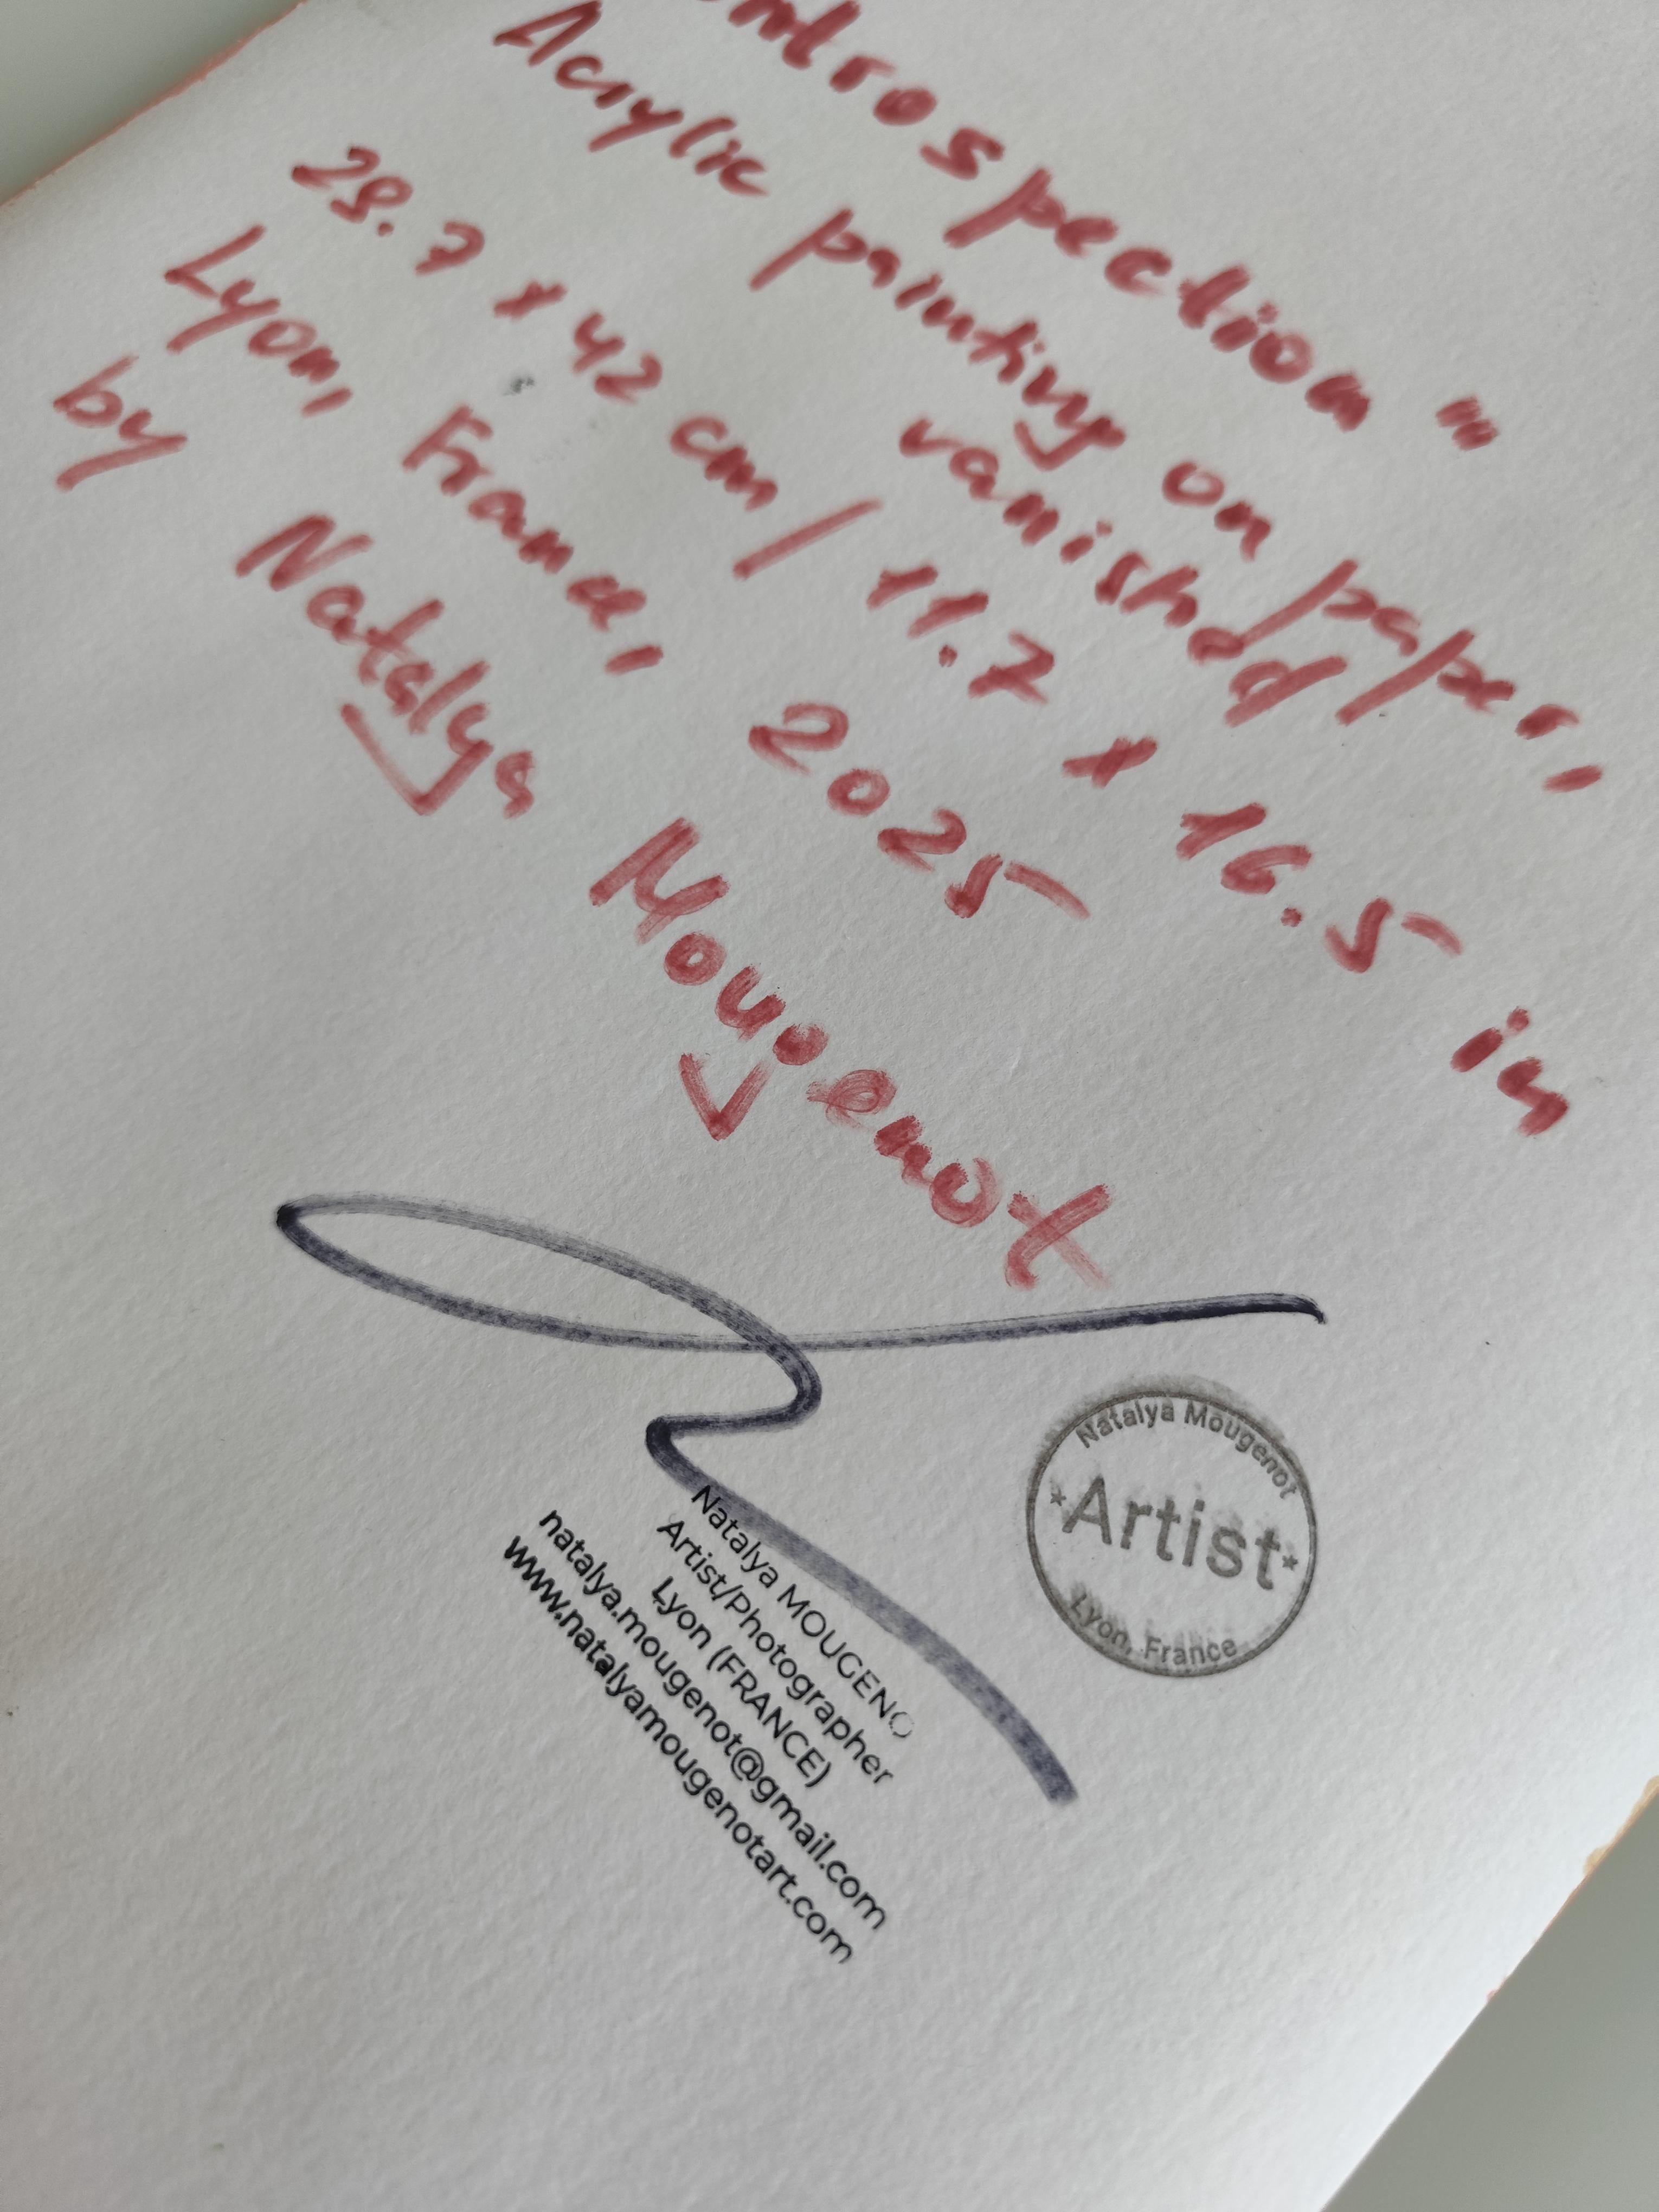 ntrospection"
Acrylic painting on paper,
vanished
29.7 x 42 cm / 11.7 x 16.5 in
Lyon, France, 2025
by Natalya Mougenot
Natalya Mougenot
*Artist*
Lyon, France
Natalya MOUGENO
Artist/Photographer
Lyon (FRANCE)
natalya.mougenot@gmail.com
www.natalyamougenotart.com